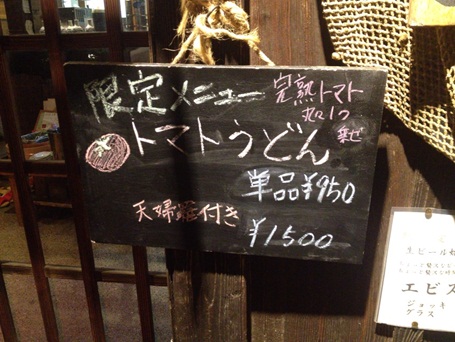 限定メニュー
完熟トマト
丸1つ
乗せ
トマトうどん
単品¥950
天婦羅付き
¥1500
生ビール
エビス
ジョッキ
グラス